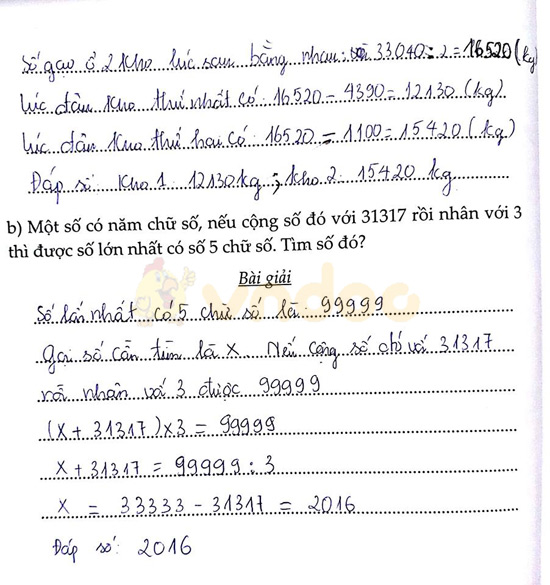 Số gạo ở 2 kho lúc sau bằng nhau: 33040 : 2 = 16520 (kg)
Lúc đầu kho thứ nhất có: 16520 - 4390 = 12130 (kg)
Lúc đầu kho thứ hai có: 16520 - 1100 = 15420 (kg)
Đáp số: Kho 1: 12130 kg; kho 2: 15420 kg
b) Một số có năm chữ số, nếu cộng số đó với 31317 rồi nhân với 3
thì được số lớn nhất có số 5 chữ số. Tìm số đó?
Bài giải
vndoc
Số lớn nhất có 5 chữ số là: 99999
Gọi số cần tìm là X. Nếu cộng số đó với 31317
rồi nhân với 3 được 99999
(X + 31317) x 3 = 99999
X + 31317 = 99999 : 3
X = 33333 - 31317 = 2016
Đáp số: 2016